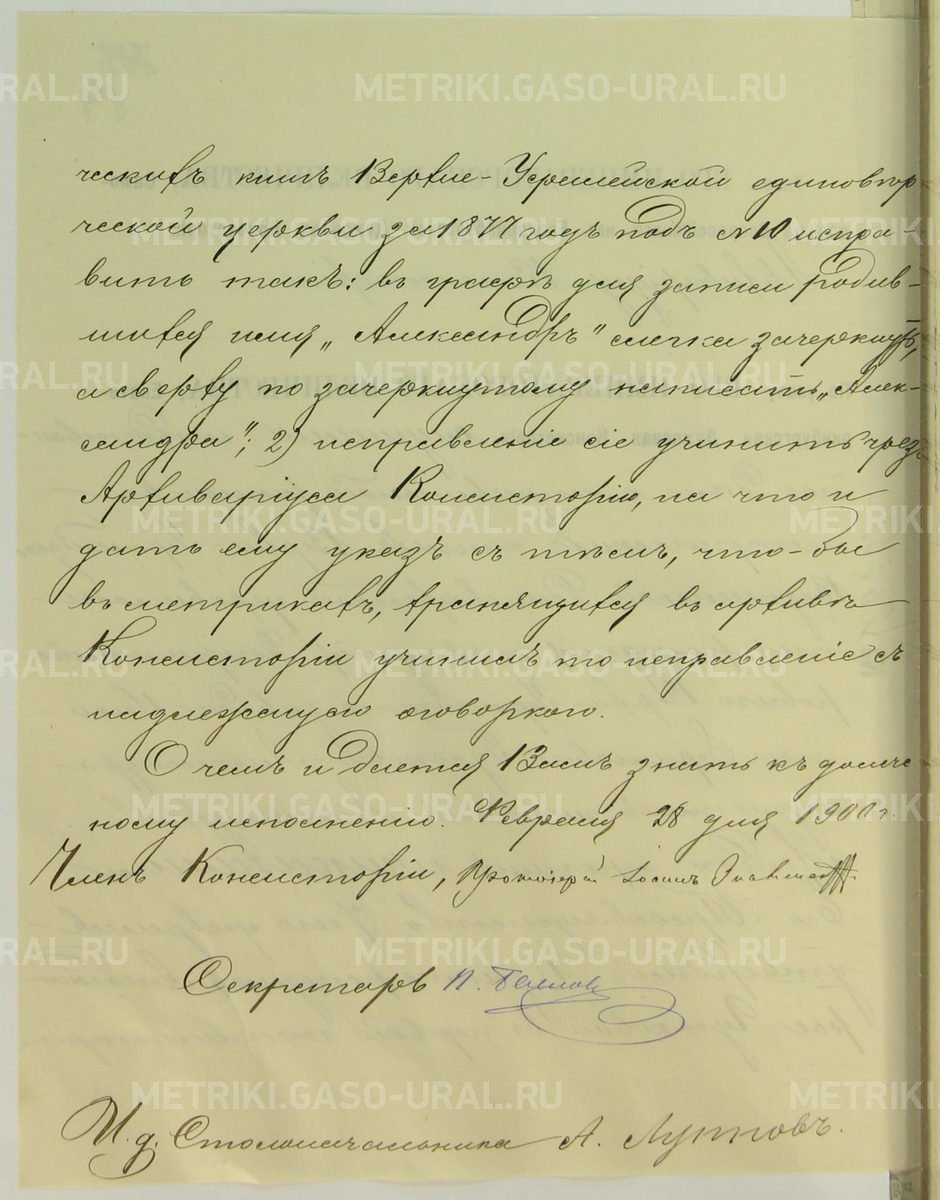 ческихъ книгъ Верхне-Уфалейской единовѣр
ческой церкви за 1877 годъ подъ № 10 испра-
вить такъ: въ графѣ для записи родив-
шихся имя „Александръ“ слегка зачеркнуть,
а сверху по зачеркнутому написать „Алек-
сандра“; 2) исправленіе сіе учинить чрезъ
Архиваріуса Консисторіи, на что и
дать ему указъ съ тѣмъ, что-бы
въ метрикахъ, хранящихся въ архивѣ
Консисторіи учинилъ то исправленіе съ
надлежащею оговоркою.
О чемъ и дается Вамъ знать къ должно
ному исполненію. Февраля 28 дня 1900 г.
Членъ Консисторіи, Протоіерей Іоаннъ
Секретарь П.
И. д. Столоначальника А. Лупповъ.
METRIKI.GASO-URAL.RU